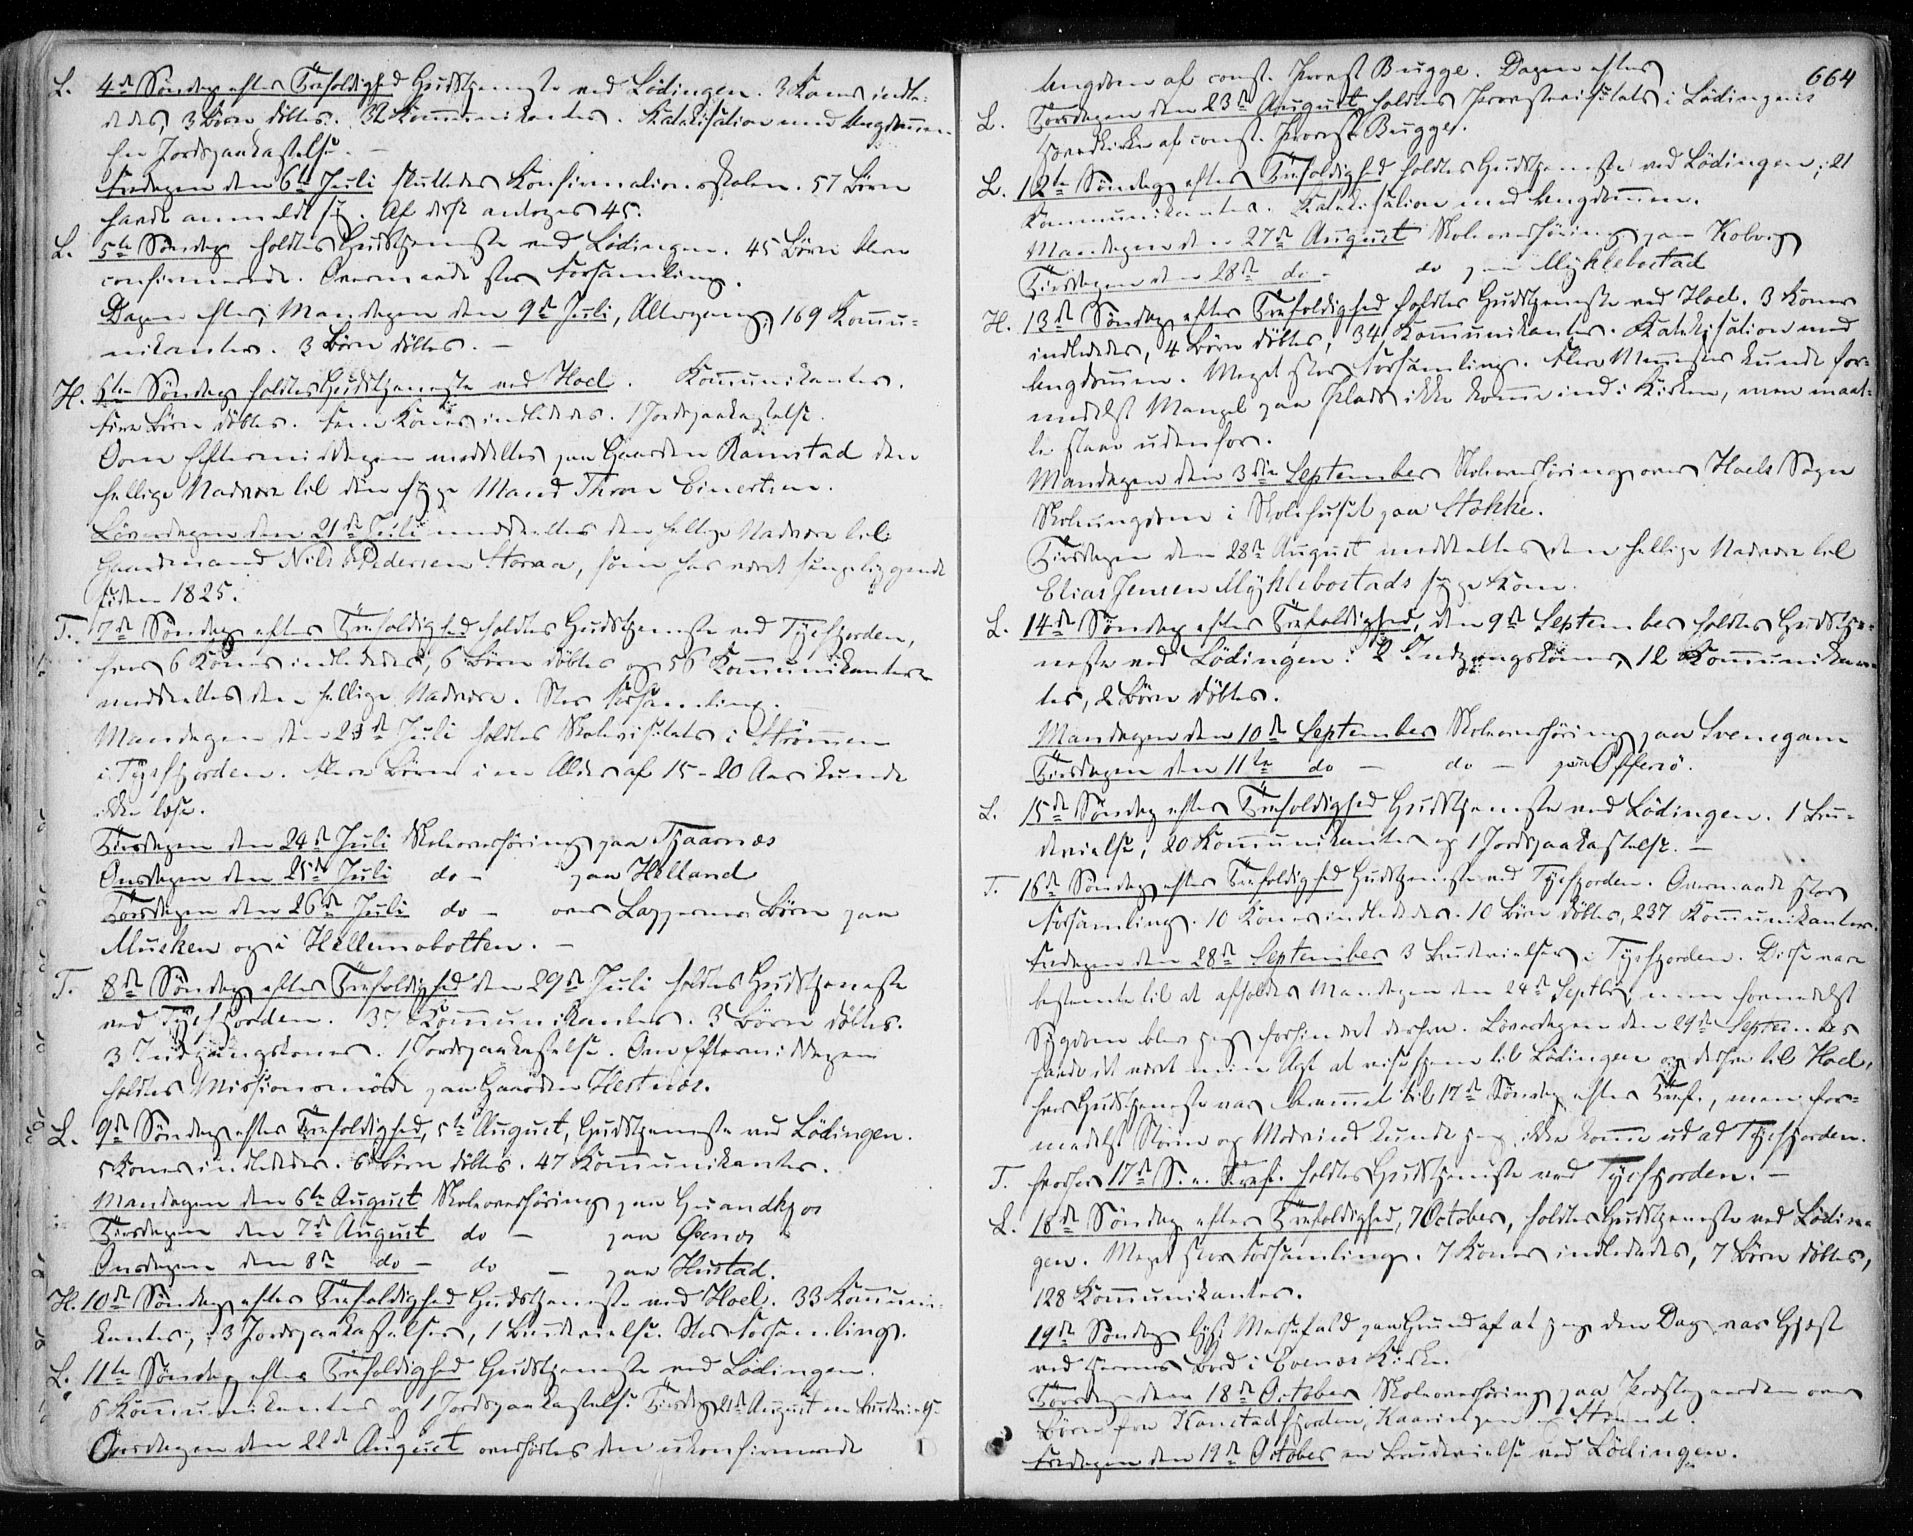 L. 4de Søndag efter Trefoldighed Gudstjeneste ved Lødingen. 3 Koner indle-
dedes, 3 Børn døbtes. 32 Kommunikanter. Katekisation med Ungdommen.
En Jordpaakastelse. -
Fredagen den 6te Juli sluttedes Konfirmationsskolen. 57 Børn
havde anmeldt sig. Af disse antoges 45.
L. 5te Søndag holdtes Gudstjeneste ved Lødingen. 45 Børn bleve
confirmerede. Overmaade stor Forsamling.
Dagen efter, Mandagen den 9de Juli, Altergang; 169 Kommu-
nikanter. 3 Børn døbtes. -
H. 6te Søndag holdtes Gudstjeneste ved Hoel. Kommunikanter.
Fire Børn døbtes. Fem Koner indlededes. 1 Jordpaakastelse.
Om Eftermiddagen meddeltes paa Gaarden Ramstad den
hellige Nadvere til den syge Mand Thron Einertsen.
Løverdagen den 21de Juli meddeltes den hellige Nadvere til
Gaardmand Nils Pedersen Storaa, som har været sengeliggende
siden 1825.
T. 7de Søndag efter Trefoldighed holdtes Gudstjeneste ved Tysfjorden,
hvor 6 Koner indlededes, 6 Børn døbtes og 56 Kommunikanter
meddeltes den hellige Nadvere. Stor Forsamling.
Mandagen den 23de Juli holdtes Skolevisitats i Strømmen
i Tysfjorden. Flere Børn i en Alder af 15-20 Aar kunde
ikke læse.
Tirsdagen den 24de Juli Skoleoverhøring paa Tjaarnæs
Onsdagen den 25de Juli do - paa Helland
Torsdagen den 26de Juli do - over Lappernes Børn paa
Musken og i Hellemobotten. -
T. 8de Søndag efter Trefoldighed den 29de Juli holdtes Gudstjeneste
ved Tysfjorden. 37 Kommunikanter. 3 Børn døbtes.
3 Indgangskoner. 1 Jordpaakastelse. Om Eftermiddagen
holdtes Missionsmøde paa Gaarden Hestnæs.
L. 9de Søndag efter Trefoldighed, 5te August, Gudstjeneste ved Lødingen.
5 Koner indlededes. 6 Børn døbtes. 47 Kommunikanter.
Mandagen den 6te August Skoleoverhøring paa
Tirsdagen den 7de August do - paa
Onsdagen den 8de do - do - paa Hustad.
H. 10de Søndag efter Trefoldighed Gudstjeneste ved Hoel. 33 Kommuni-
kanter, 3 Jordpaakastelser, 1 Brudevielse. Stor Forsamling.
L. 11te Søndag efter Trefoldighed Gudstjeneste ved Lødingen.
6 Kommunikanter og 1 Jordpaakastelse. Tirsdag 21de August en Brudevielse.
Onsdagen den 22de August overhørtes den ukonfirmerede
664
Ungdom af const. Provst Bugge. Dagen efter
L. Torsdagen den 23de August holdtes Provstevisitats i Lødingens
Hovedkirke af const. Provst Bugge.
L. 12te Søndag efter Trefoldighed holdtes Gudstjeneste ved Lødingen; 21
Kommunikanter. Katekisation med Ungdommen.
Mandagen den 27de August Skoleoverhøring paa Kobvig
Tirsdagen den 28de do - do paa Myklebostad
H. 13de Søndag efter Trefoldighed holdtes Gudstjeneste ved Hoel. 3 Koner
indlededes, 4 Børn døbtes, 34 Kommunikanter. Katekisation med
Ungdommen. Meget stor Forsamling. Flere Mennesker kunde for-
medelst Mangel paa Plads ikke komme ind i Kirken, men maat-
te staae udenfor.
Mandagen den 3die September Skoleoverhøring over Hoels Sogn
Skoleungdom i Skolehuset paa Stokke.
Tirsdagen den 28de August meddeltes den hellige Nadvere til
Elias Jensen Myklebostads syge Kone.
L. 14de Søndag efter Trefoldighed, den 9de September holdtes Gudstje-
neste ved Lødingen. 2 Indgangskoner, 12 Kommunikan-
ter, 2 Børn døbtes.
Mandagen den 10de September Skoleoverhøring paa Svenegam
Tirsdagen den 11te do - do - paa Offersø.
L. 15de Søndag efter Trefoldighed Gudstjeneste ved Lødingen. 1 Bru-
devielse, 20 Kommunikanter og 1 Jordpaakastelse. -
T. 16de Søndag efter Trefoldighed Gudstjeneste ved Tysfjorden. Overmaade stor
Forsamling. 10 Koner indlededes. 10 Børn døbtes, 237 Kommunikanter.
Fredagen den 28de September 3 Brudevielser i Tysfjorden. Disse vare
bestemte til at afholdes Mandagen den 24de Septbr, men formedelst
Sygdom blev jeg forhindret derfra. Løverdagen den 29de September
havde det været min Agt at reise hjem til Lødingen og derfra til Hoel,
hvor Gudstjeneste var berammet til 17de Søndag efter Tref., men for-
medelst Storm og Modvind kunde jeg ikke komme ud ad Tysfjorden.
T. Herfor 17de S. e. Tref. holdtes Gudstjeneste ved Tysfjorden. -
L. 18de Søndag efter Trefoldighed, 7 October, holdtes Gudstjeneste ved Lødin-
gen. Meget stor Forsamling. 7 Koner indlededes, 7 Børn døbtes,
128 Kommunikanter.
19de Søndag lyst Messefald paa Grund af at jeg den Dag var Gjæst
ved Herrens Bord i Evenæs Kirke.
Torsdag den 18de October Skoleoverhøring paa Prestegaarden over
Børn fra Kanstadfjorden, Kaaringen og Strand.
Fredagen den 19de October en Brudevielse ved Lødingen.